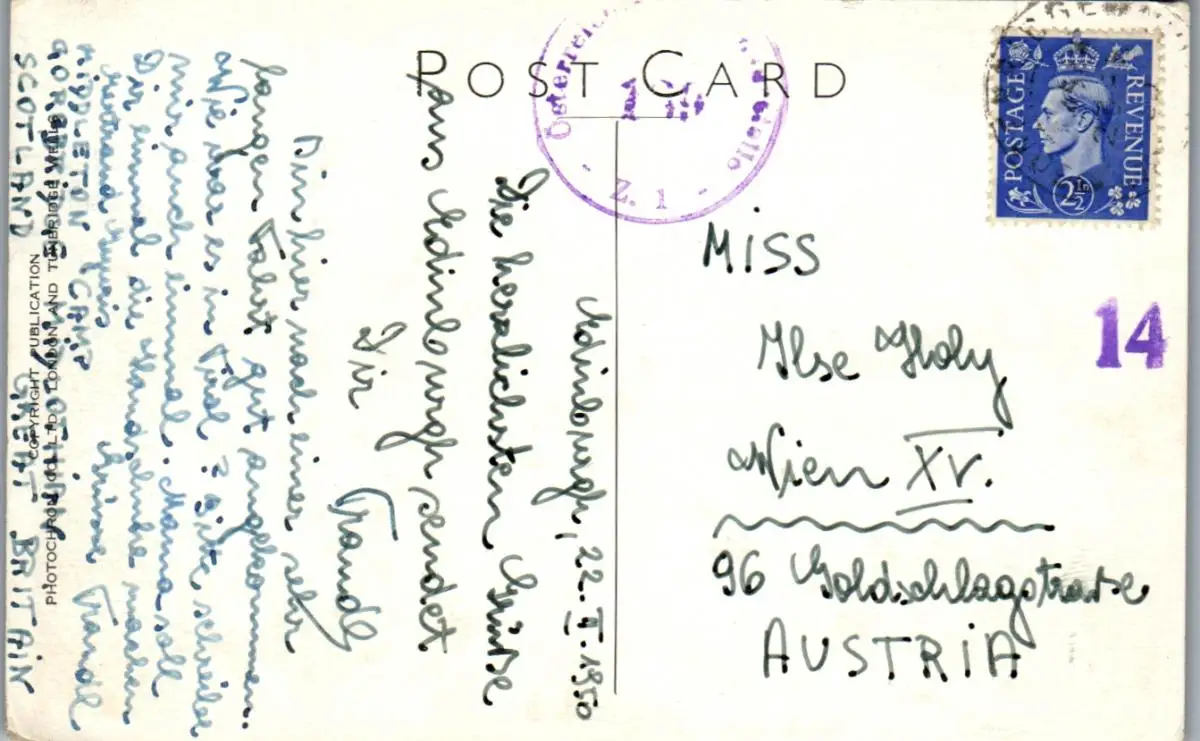 POST CARD
Österreich
Z. 1
POSTAGE
REVENUE
2½D
14
MISS
Ilse Holy
Wien XV.
96 Goldschlagstrasse
AUSTRIA
Edinburgh, 22. II. 1950
Die herzlichsten Grüsse
aus Edinburgh sendet
Dir
Traudl
Bin hier nach einer sehr
langen Fahrt gut angekommen.
Wie war es in Tirol? Bitte schreibe
mir auch einmal. Mama soll
Dir einmal die Handschuhe machen
Grüsse Traudl
MIDDLETON CAMP
GOREBRIDGE MIDLOTHIAN
SCOTLAND GREAT BRITAIN
COPYRIGHT PUBLICATION
PHOTOCHROM CO. LTD. LONDON AND TUNBRIDGE WELLS